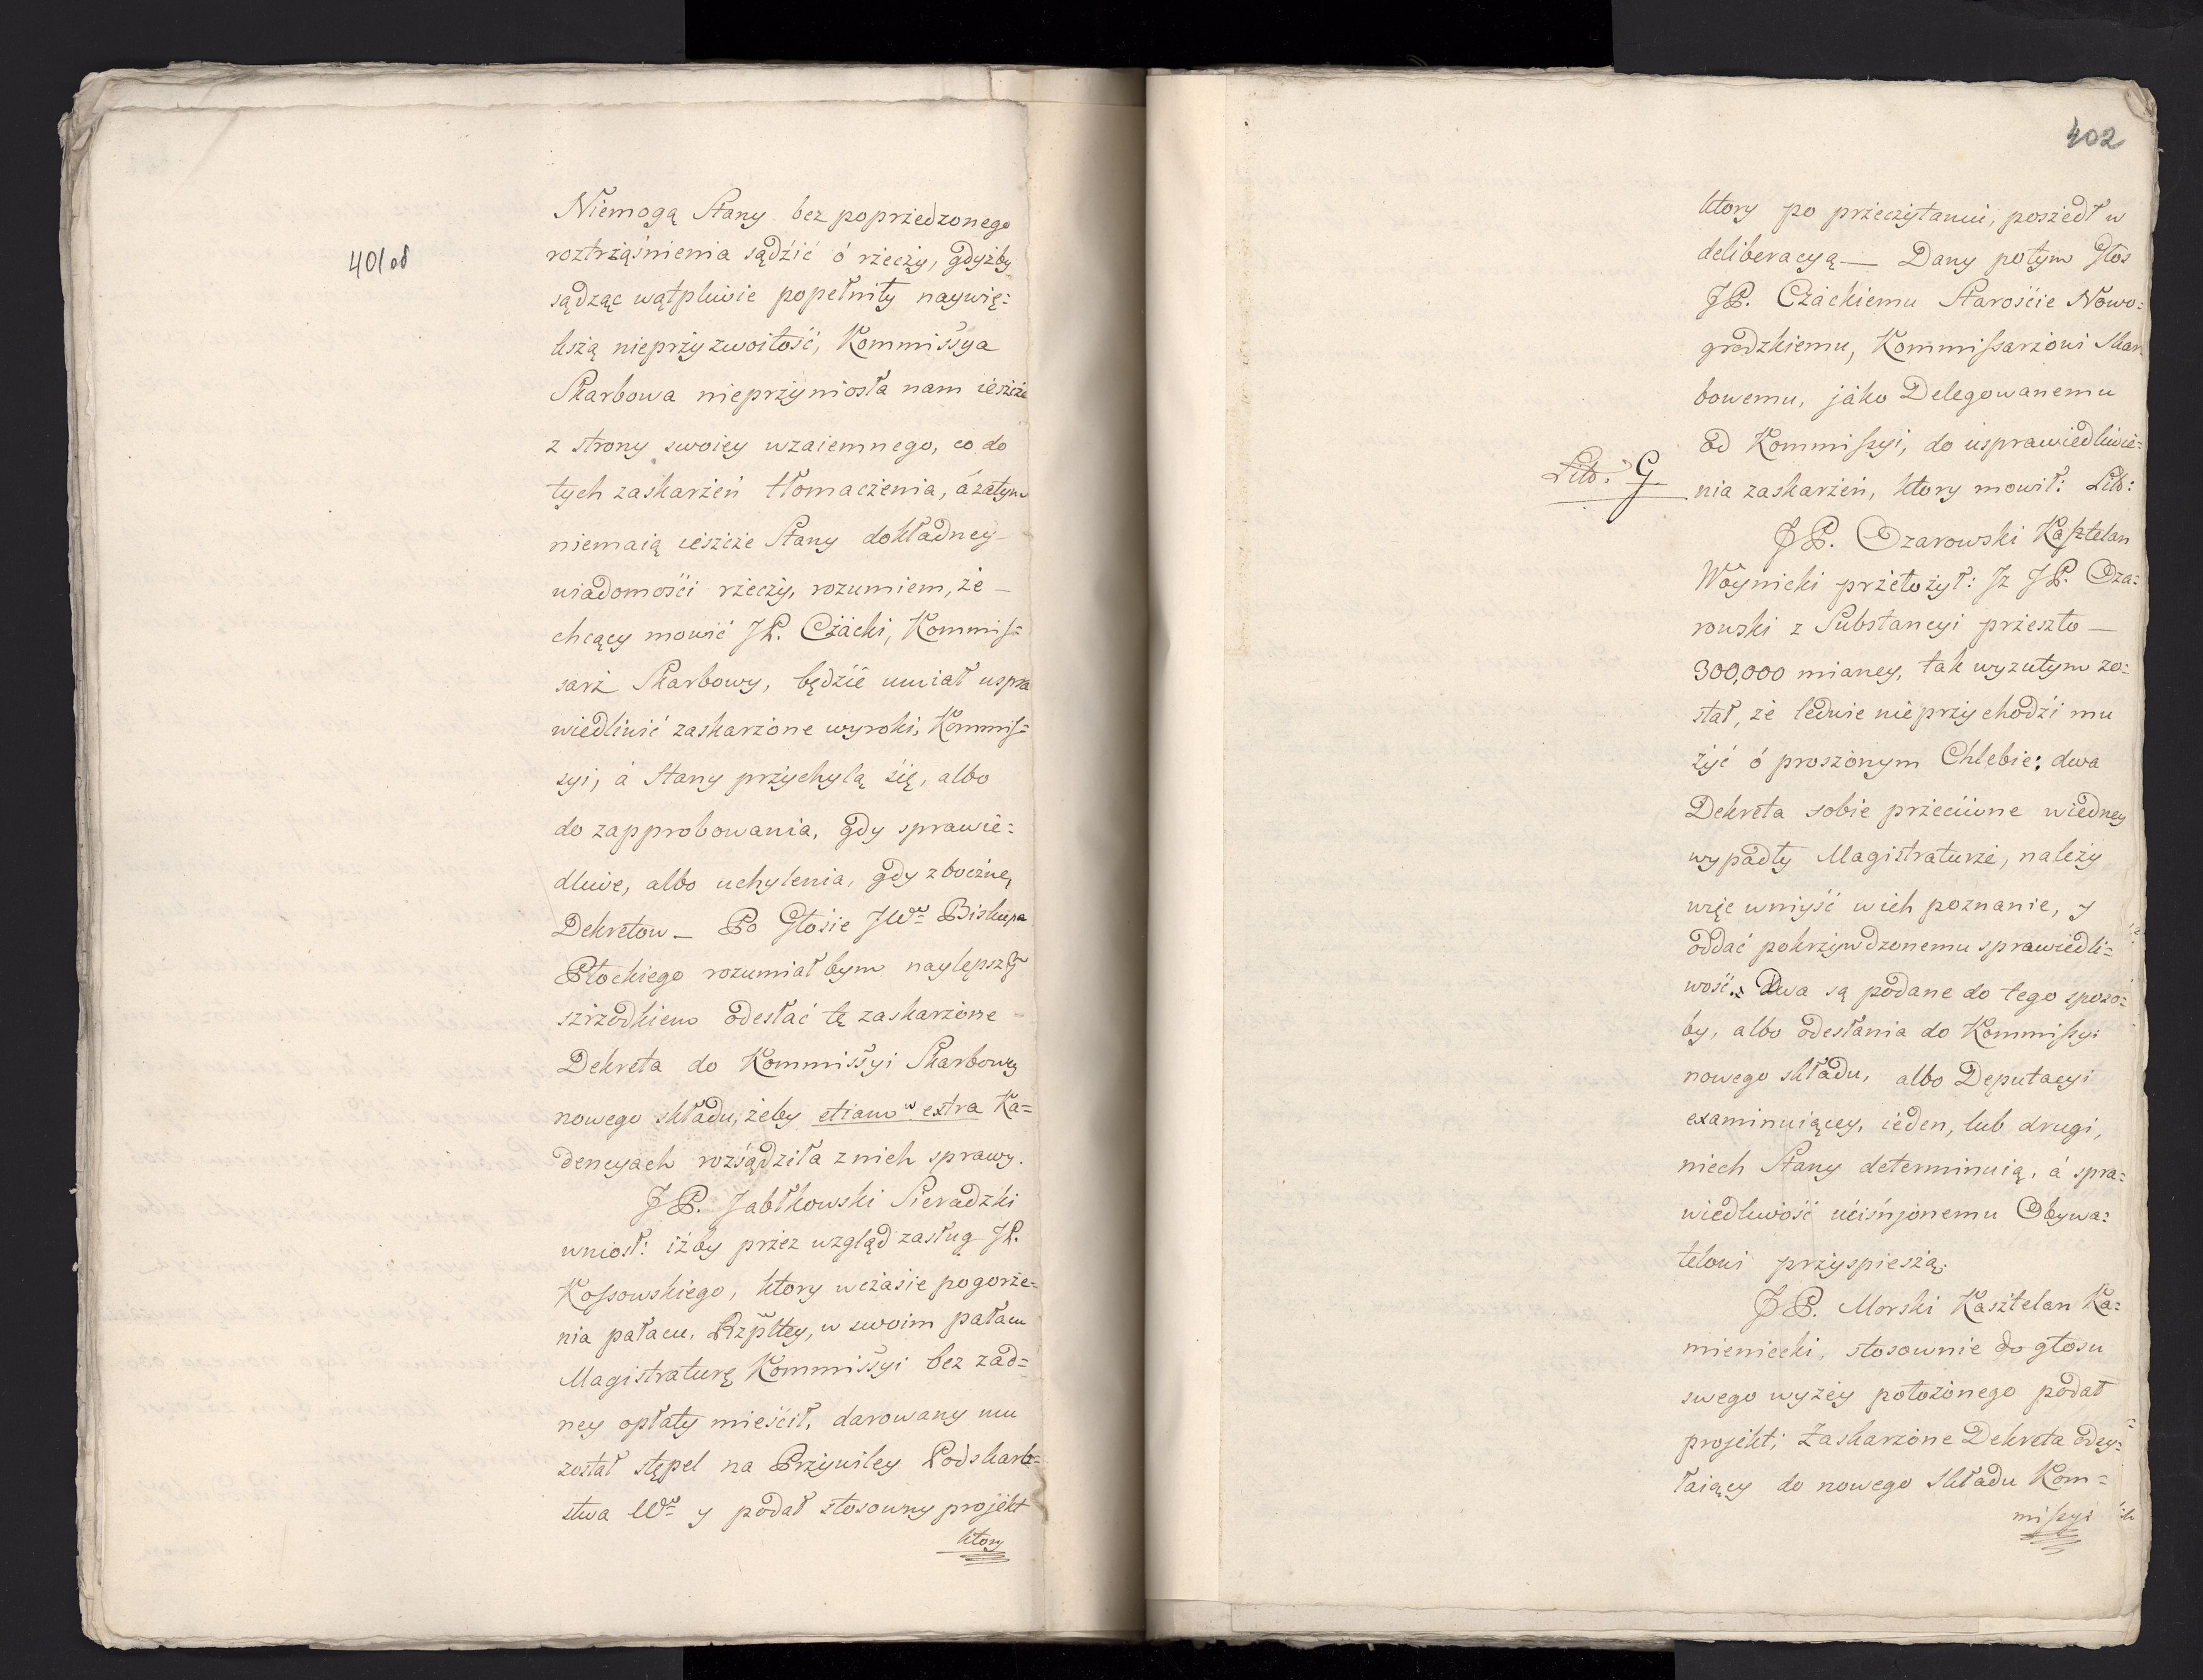 401 od
Niemogą Stany bez poprzedzonego
roztrząśnienia sądzić ó rzeczy, gdyżby
sądząc wątpliwie popełniły naywię=
kszą nieprzyzwoitość, Kommissya
Skarbowa nieprzyniosła nam ieszcze
z strony swoiey wzaiemnego, co do
tych zaskarżeń tłomaczenia, á zatym
niemaią ieszcze Stany dokładney
wiadomości rzeczy, rozumiem, że —
chcący mowić JP. Czacki, Kommis=
sarz Skarbowy, będzie umiał uspra
wiedliwić zaskarżone wyroki, Kommis=
syi, á Stany przychylą się, albo
do zapprobowania, gdy sprawie=
dliwe, albo uchylenia, gdy zboczne,
Dekretow — Po Głosie JWo Biskupa
Płockiego rozumiał bym naylepszy
szrzodkiem odesłać te zaskarżone
Dekreta do Kommissyi Skarbowey
nowego składu, żeby etiam extra Ka=
dencyach rozsądziła z nich sprawy.
JP. Jabłkowski Sieradzki
wniosł: iżby przez wzgląd zasług JP.
Kossowskiego, ktory w czasie pogorze=
nia pałacu, Rzpltey, w swoim pałacu
Magistraturę Kommissyi bez żad=
ney opłaty mieścił, darowany mu
został stępel na Przywiley Podskarb=
stwa Wo y podał stosowny projekt
ktory
402
ktory po przeczytaniu, poszedł w
deliberacyą — Dany potym Głos
JP. Czackiemu Staroście Nowo=
grodzkiemu, Kommissarzowi Skar
bowemu, jáko Delegowanemu
od Kommissyi, do usprawiedliwie=
Litt. G. nia zaskarżeń, ktory mowił: Litt:
JP. Ozarowski Kasztelan
Woynicki przełożył: Iz JP. Oza=
rowski z Substancyi przeszło —
300,000 mianey, tak wyzutym zo=
stał, że ledwie nie przychodzi mu
żyć ó proszonym Chlebie; dwa
Dekreta sobie przeciwne wiedney
wypadły Magistraturze, należy
więc wniyść w ich poznanie, y
oddać pokrzywdzonemu sprawiedli=
wość. Dwa są podane do tego sposo=
by, albo odesłania do Kommissyi
nowego składu, albo Deputacyi
examinuiącey, ieden, lub drugi,
niech Stany determinuią, á spra=
wiedliwość uciśnionemu Obywa=
telowi przyspieszą.
JP. Morski Kasztelan Ka=
mieniecki, stosownie do głosu
swego wyżey położonego podał
projekt; Zaskarżone Dekreta odsy=
łaiący do nowego Składu Kom=
missyi